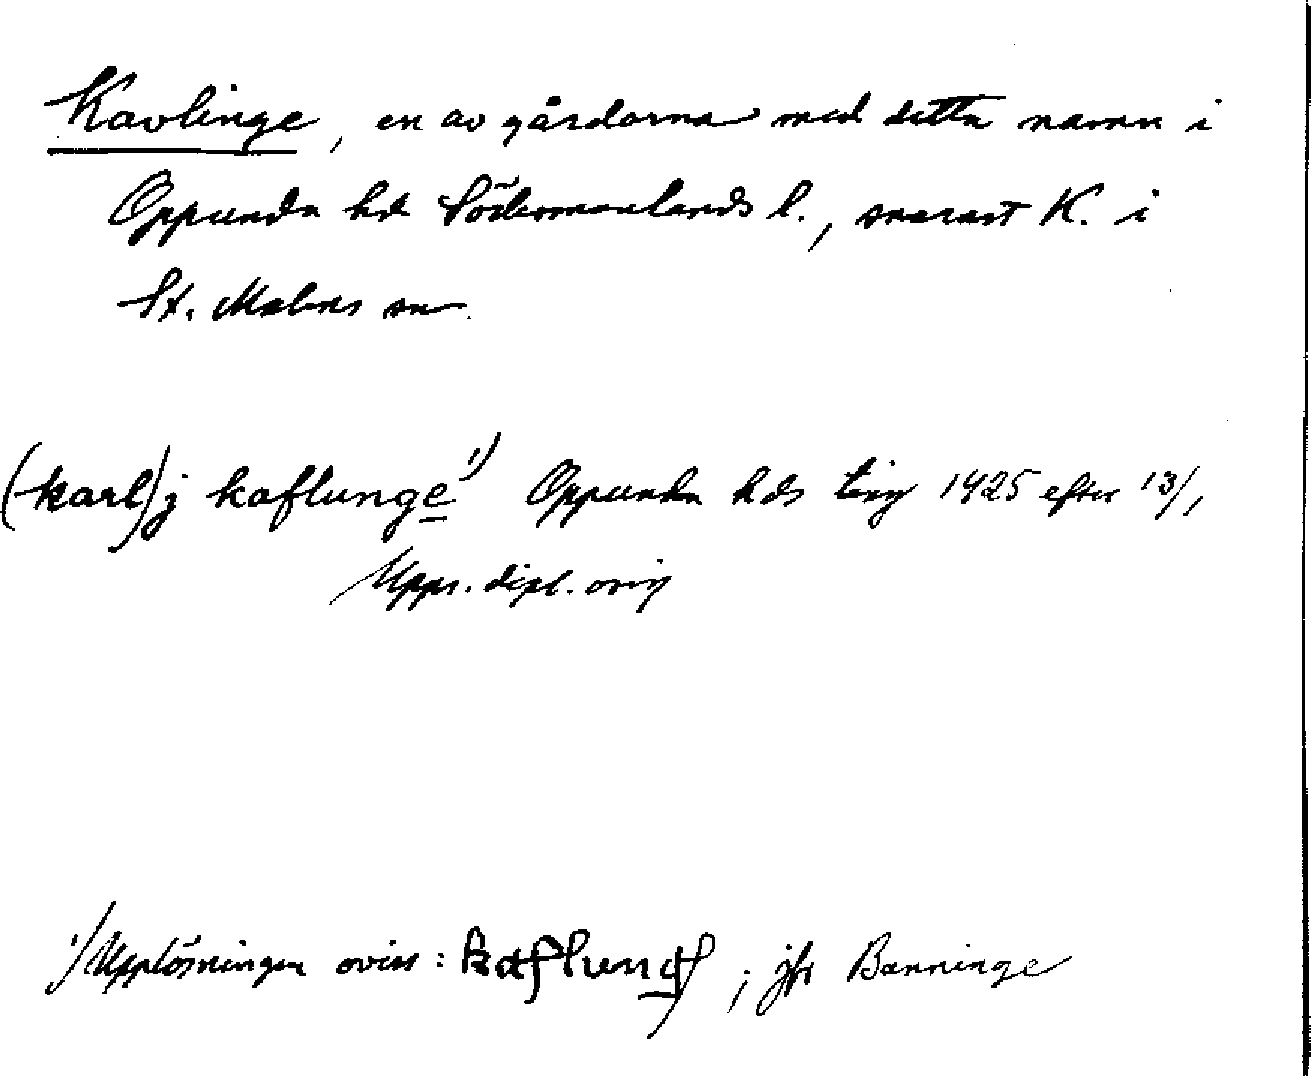 Kavlinge, en av gårdarna med detta namn i
Oppunda hd Södermanlands l., snarast K. i
St. Malms sn.
(karl) j kaflunge 1) Oppunda hds ting 1425 efter 13/1
Upps. dipl. orig
1) Upplösningen oviss: kaflung, jfr Banninge